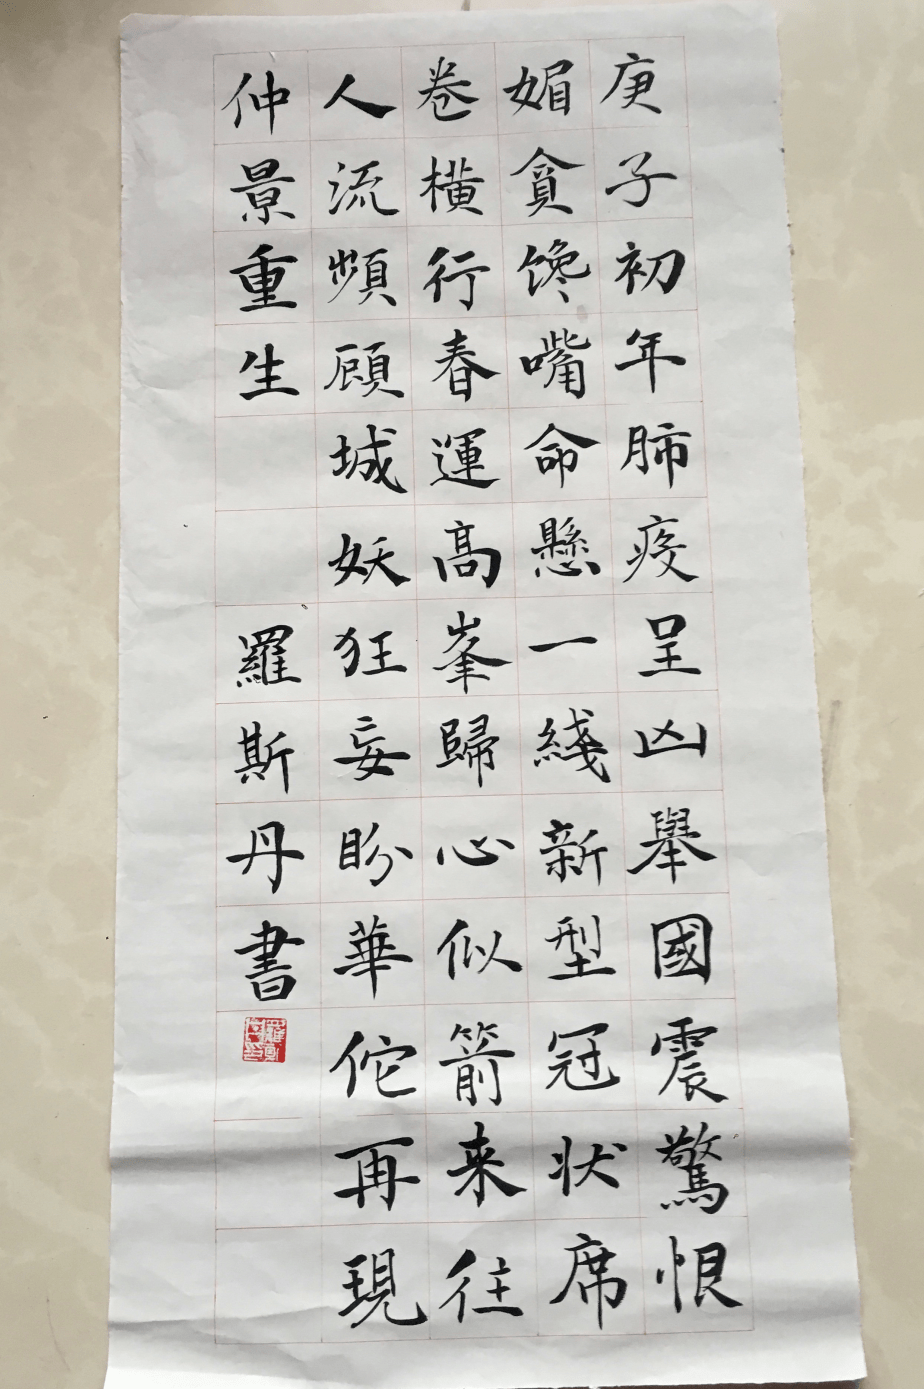 庚子初年肺疫呈凶舉國震驚恨
媚貪馋嘴命懸一綫新型冠状席
卷横行春運高峯歸心似箭来往
人流頻顧城妖狂妄盼華佗再現
仲景重生 羅斯丹書